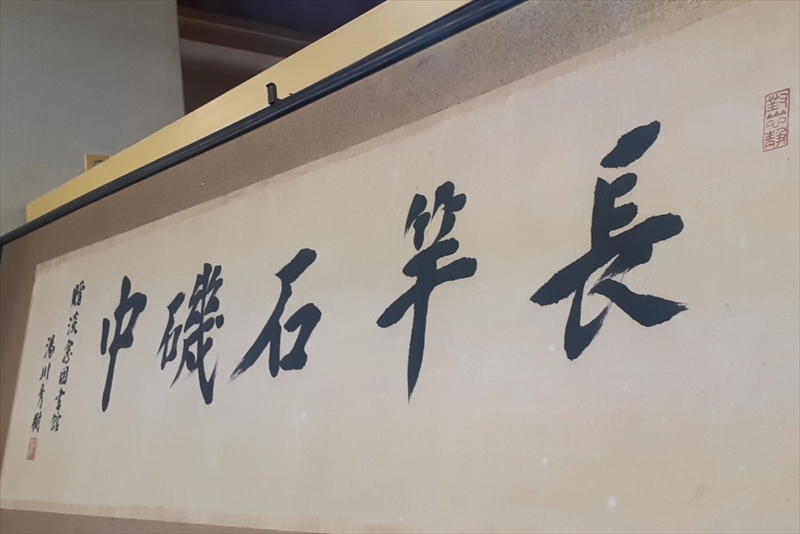 長竿石磯中
贈淡窓図書館
湯川秀樹